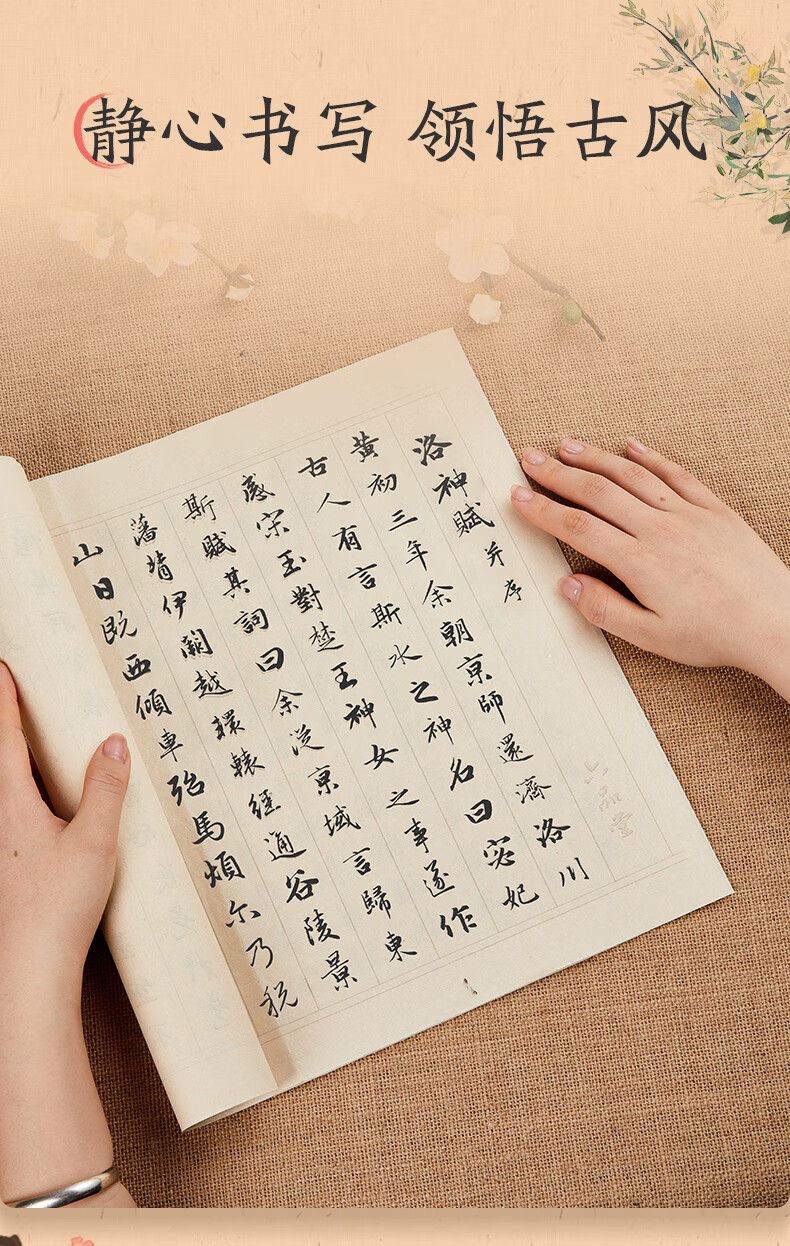 静心书写 领悟古风
洛神賦并序
黄初三年余朝京師還濟洛川
古人有言斯水之神名曰宓妃
感宋玉對楚王神女之事遂作
斯賦其詞曰余從京域言歸東
藩背伊闕越轘轅經通谷陵景
山日既西傾車殆馬煩尓乃税
六品堂